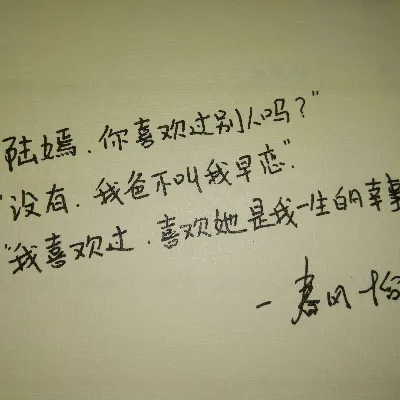 陆嫣、你喜欢过别人吗？"
"没有、我爸不叫我早恋".
"我喜欢过、喜欢她是我一生的幸事
一春风十